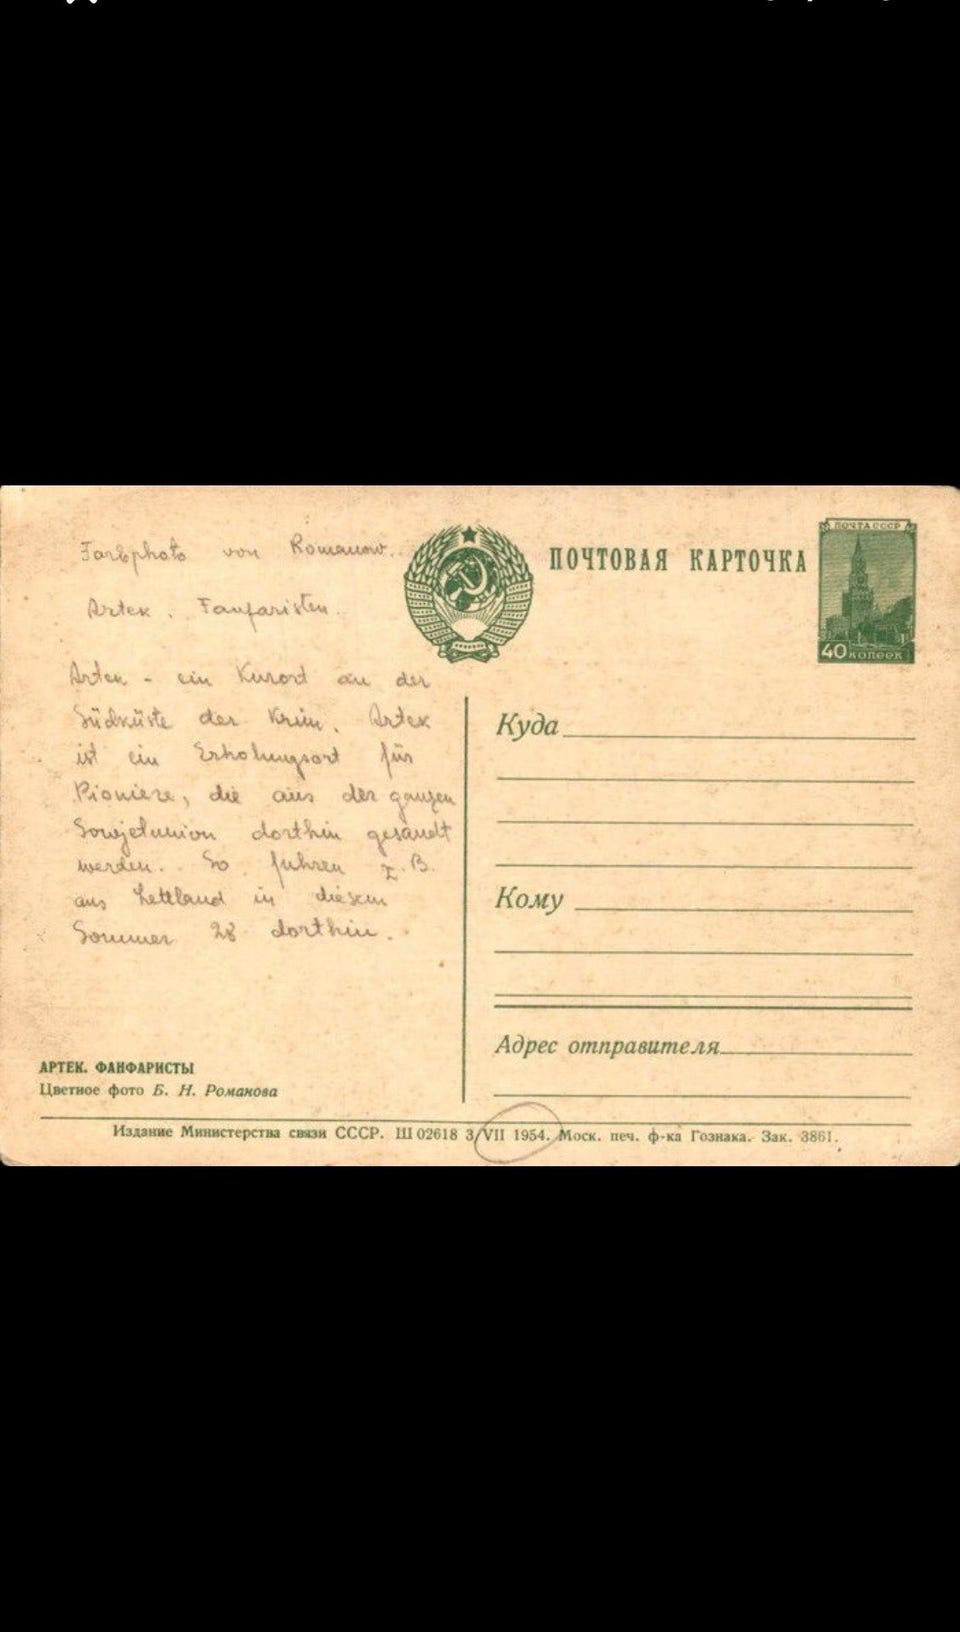 Farbphoto von Romanow.
Artek. Fanfaristen.
Artek - ein Kurort an der
Südküste der Krim. Artek
ist ein Erholungsort für
Pioniere, die aus der ganzen
Sowjetunion dorthin gesandt
werden. So fuhren z.B.
aus Lettland in diesem
Sommer 28 dorthin.
АРТЕК. ФАНФАРИСТЫ
Цветное фото Б. Н. Романова
ПОЧТОВАЯ КАРТОЧКА
ПОЧТА СССР
40 КОПЕЕК
Куда
Кому
Адрес отправителя
Издание Министерства связи СССР. Ш 02618 3/VII 1954. Моск. печ. ф-ка Гознака. Зак. 3861.